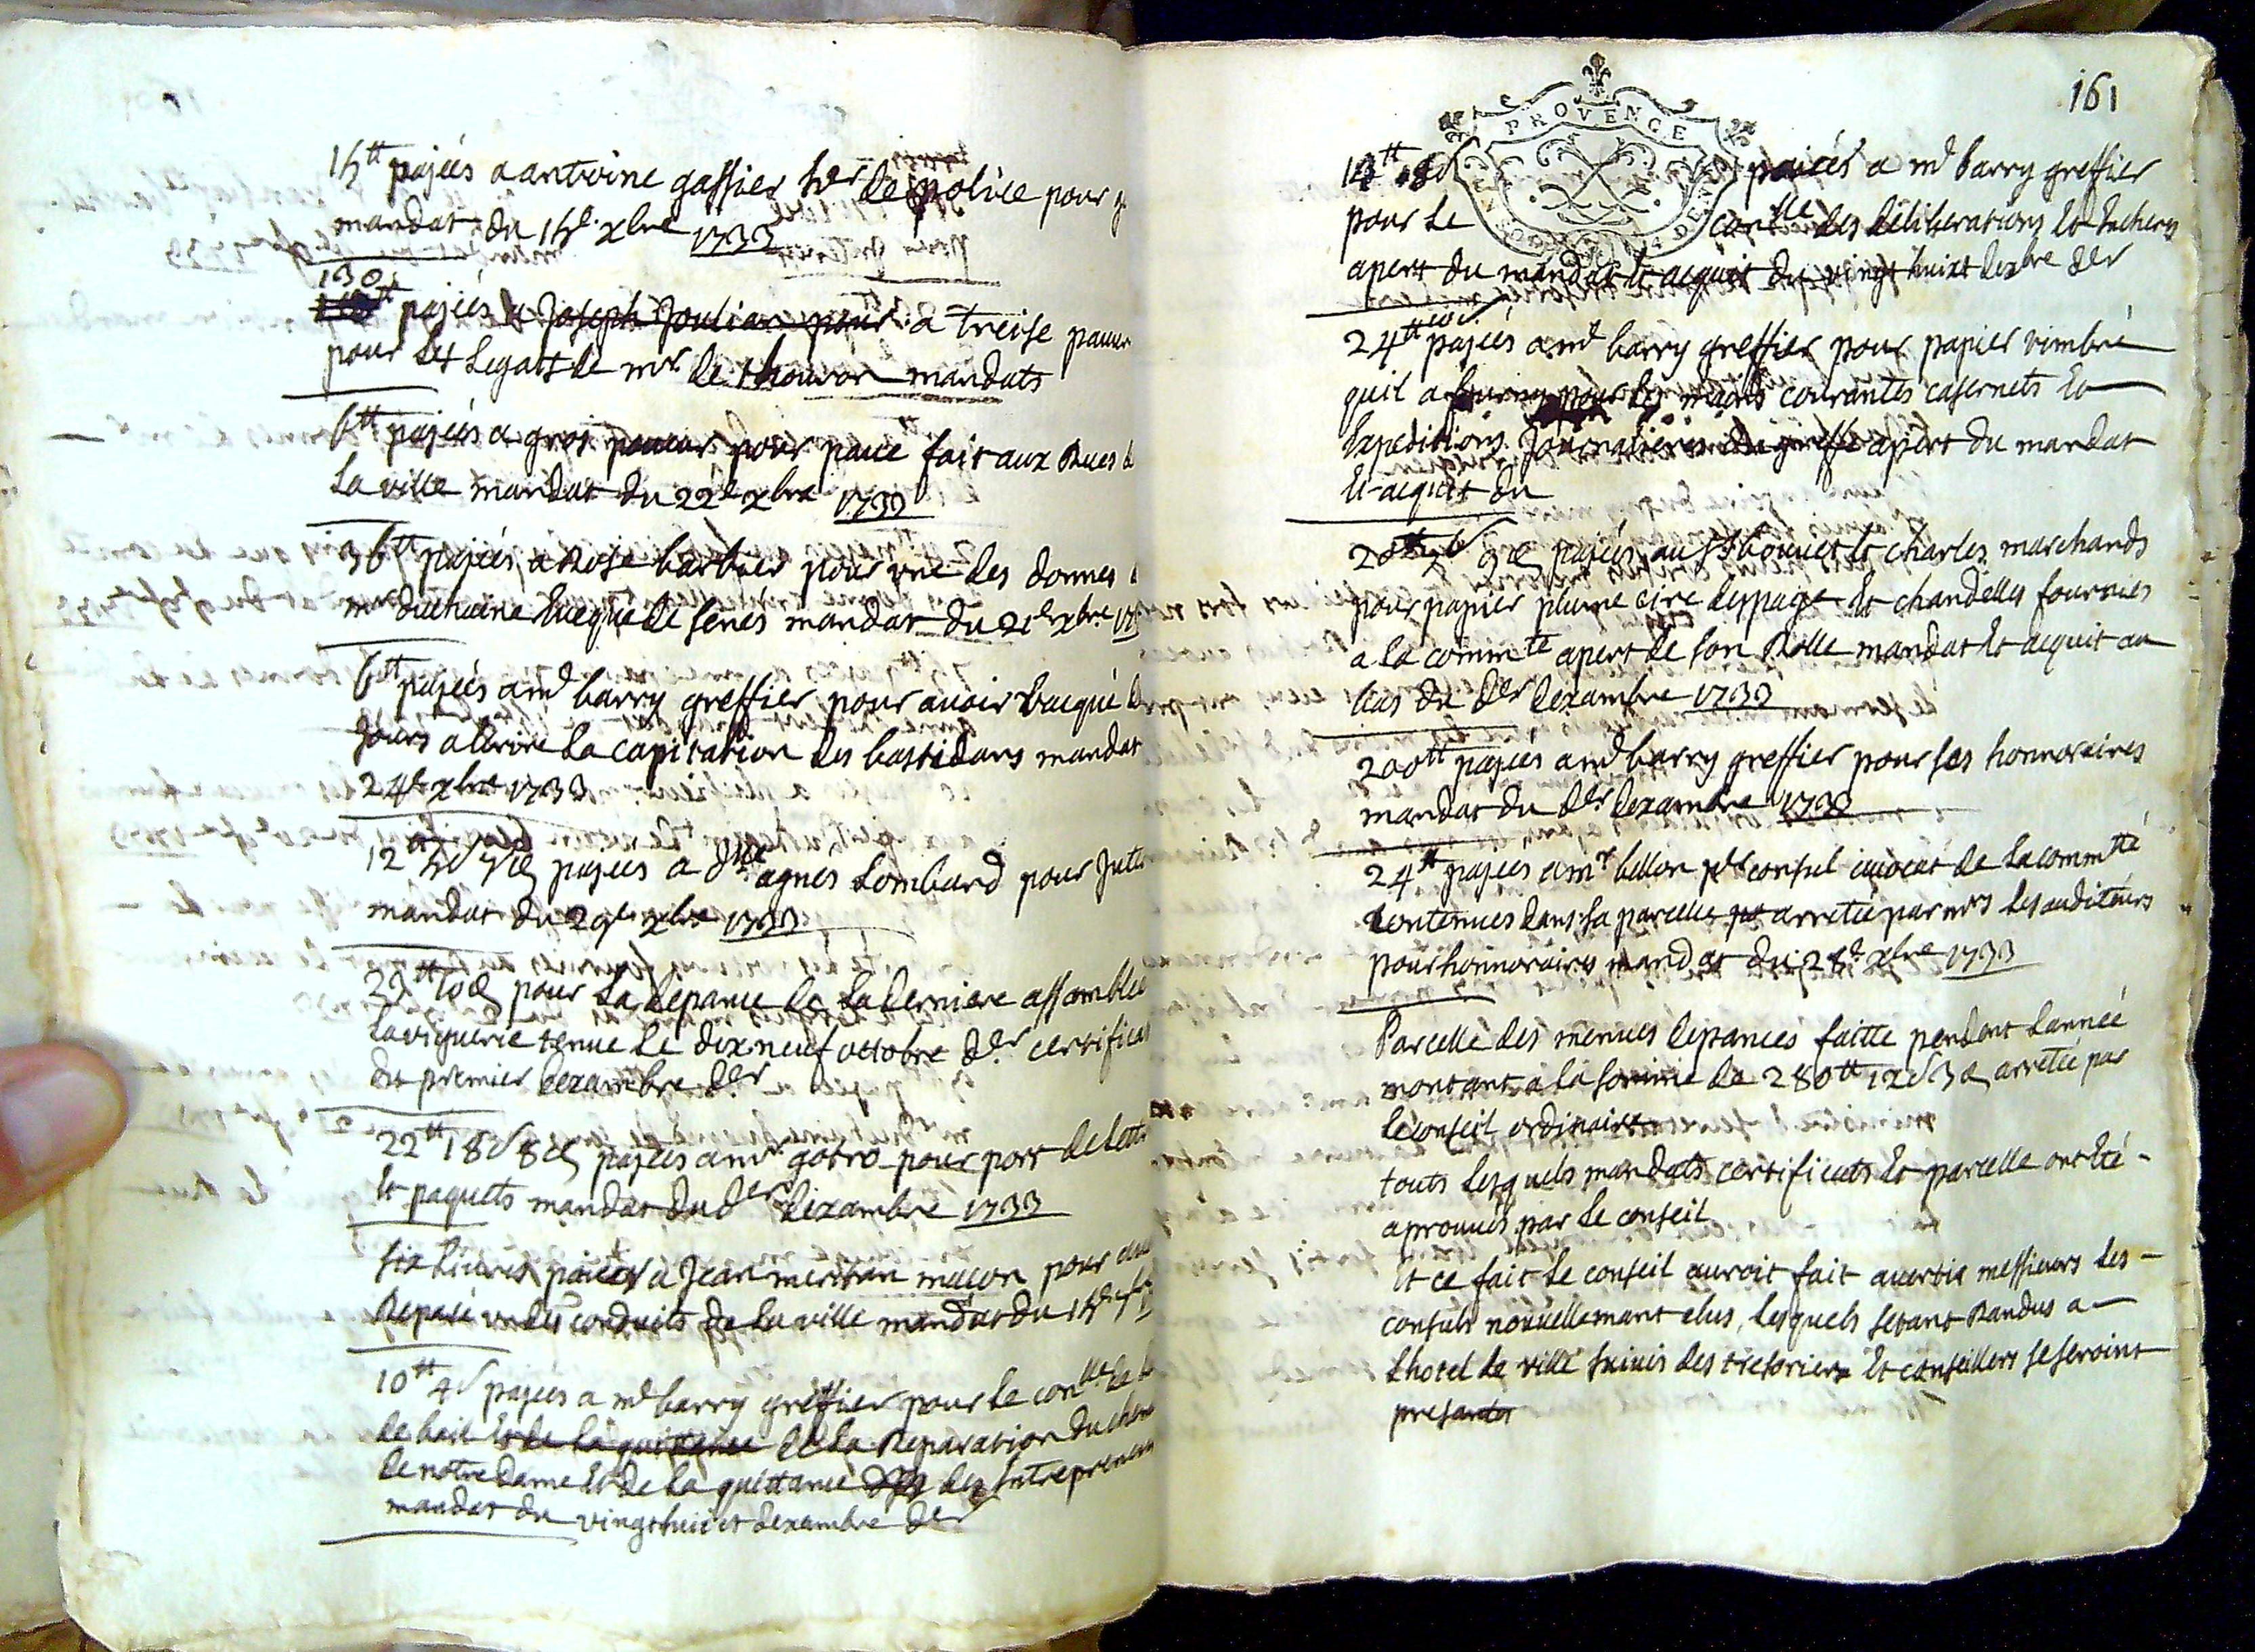 15ᵗᵗ pajeés a antoine gassier ser de police pour
mandat du 15e xbre 1733
130
ᵗᵗ pajeés a Joseph Joulian pour a treise pauvr
pour les Legats de mr de thouron mandats
6ᵗᵗ pajeés a gros paveur pour pavé fait aux Rues
La ville mandat du 22e xbre 1733
36ᵗᵗ pajeés a Rose barbier pour une des donnes
mr duchaine Eveque de senés mandat du 21e xbre
6ᵗᵗ pajeés a md barry greffier pour avoir vacqué
jours a Ecrire La capitation des bastidans mandat
24e xbre 1733
pajeés a dlle agnés Lombard pour
mandat du 29e xbre 1733
pour La depance de La derniere assamblee
La viguerie tenue Le dix neuf octobre der certificat
du premier dexambre der
22ᵗᵗ 18s 8d pajeés a mr gotro pour port de Lett
Et paquets mandat du der dexambre 1733
six Livres paieés a Jean meritan maçon pour
Reparé un des conduits de La ville mandat du
10ᵗᵗ 4s pajeés a md barry greffier pour Le conlle de
de bail Et de La quittance de La Reparation du chem
de notre dame Et de La quittance des Entrepreneur
mandat du vingt huict dexambre der
161
PROVENCE
paieés a md barry greffier
pour Le conlle des deliberations Et Encheres
apert du mandat Et acquit du vingt huixt dexbre der
10s
24ᵗᵗ pajeés a md barry greffier pour papier timbré
quil a fourny pour les mains courantes casernets Et
Expeditions Journalieres du greffe apert du mandat
Et acquit du
pajeés au Sr bouvet Et charles marchands
pour papier plume cire despagne Et chandelles fournies
a La commte apert de son Rolle mandat Et acquit au
bas du der dexambre 1733
200ᵗᵗ pajeés a md barry greffier pour ses honnoraires
mandat du der dexambre 1733
24ᵗᵗ pajeés a mr bellon pr consul avocat de La commtté
contenues dans sa parcelle arretée par mrs Les auditeurs
pour honnoraires mandat du 28e xbre 1733
Parcelle des menues depances faitte pendent Lanneé
montant a La somme de 280ᵗᵗ 12s 3d arretée par
Le conseil ordinaire
touts Lesquels mandats certificats Et parcelle ont Eté
aprouvés par Le conseil
Et ce fait Le conseil auroit fait avertir messieurs Les
consuls nouvellemant elus, Lesquels setant Randus a
Lhotel de ville suivis des tresoriers Et conseillers se seroint
presantés